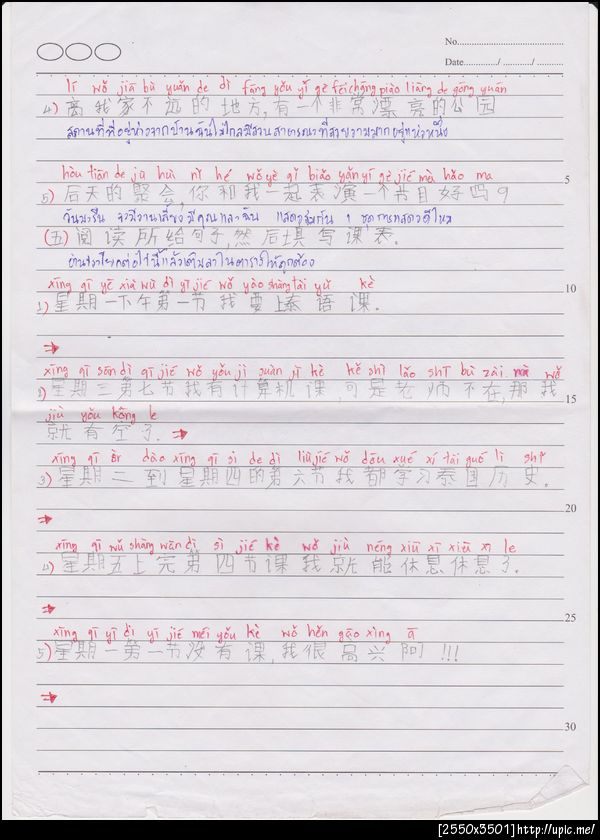 No.
Date / /
lí wǒ jiā bù yuǎn de dì fāng yǒu yī gè fēi cháng piào liàng de gōng yuán
4) 离我家不远的地方,有一个非常漂亮的公园
hòu tiān de jù huì nǐ hé wǒ yè qǐ biǎo yǎn yī gè jié mù hǎo ma
5
5) 后天的聚会,你和我一起表演一个节目好吗?
(五) 阅读所给句子,然后填写课表.
อ่านประโยคต่อไปนี้แล้วเติมลงในตารางให้ถูกต้อง
xīng qī yī xià wǔ dì yī jié wǒ yào shàng tài yǔ kè
10
1) 星期一下午第一节我要上泰语课.
xīng qī sān dì qī jié wǒ yǒu jì suàn jī kè kě shì lǎo shī bù zài nà wǒ
2) 星期三第七节我有计算机课,可是老师不在,那我
15
jiù yǒu kōng le
就有空了.
xīng qī èr dào xīng qī sì de dì liù jié wǒ dōu xué xí tài guó lì shǐ
3) 星期二到星期四的第六节我都学习泰国历史.
20
xīng qī wǔ shàng wán dì sì jié kè wǒ jiù néng xiū xī xiū xī le
4) 星期五上完第四节课我就能休息休息了.
25
xīng qī yī dì yī jié méi yǒu kè wǒ hěn gāo xìng ā
5) 星期一第一节没有课,我很高兴阿!!!
30
[2550x3501]http://upic.me/